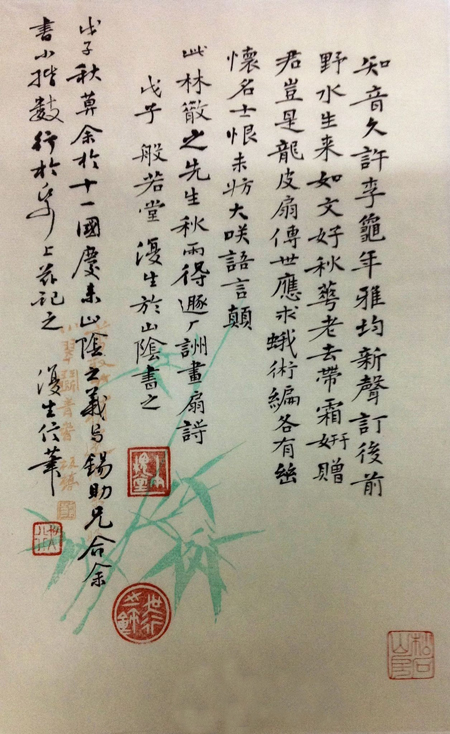 知音久許李龜年雅均新聲訂後前
野水生来如文好秋蕚老去帶霜妍贈
君豈是龍皮扇傳世應求蛾術編各有幽
懷名士恨未妨大咲語言顛
此林散之先生秋雨得邂廠訓畫扇詩
戊子 般若堂 澓生於山陰書之
戊子秋莫余於十一國慶来山陰之義与錫助兄合余
書小揩數行於帋上茲記之 澓生信筆